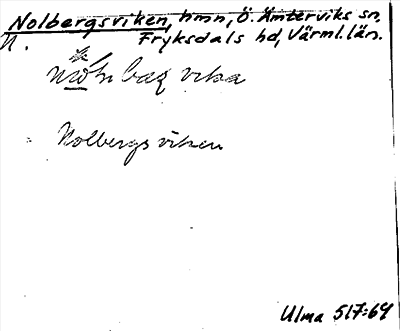 Nolbergsviken, hmn, Ö. Ämterviks sn,
N. Fryksdals hd, Värml. län.
vika
Nolbergsviken
Ulma 517:69